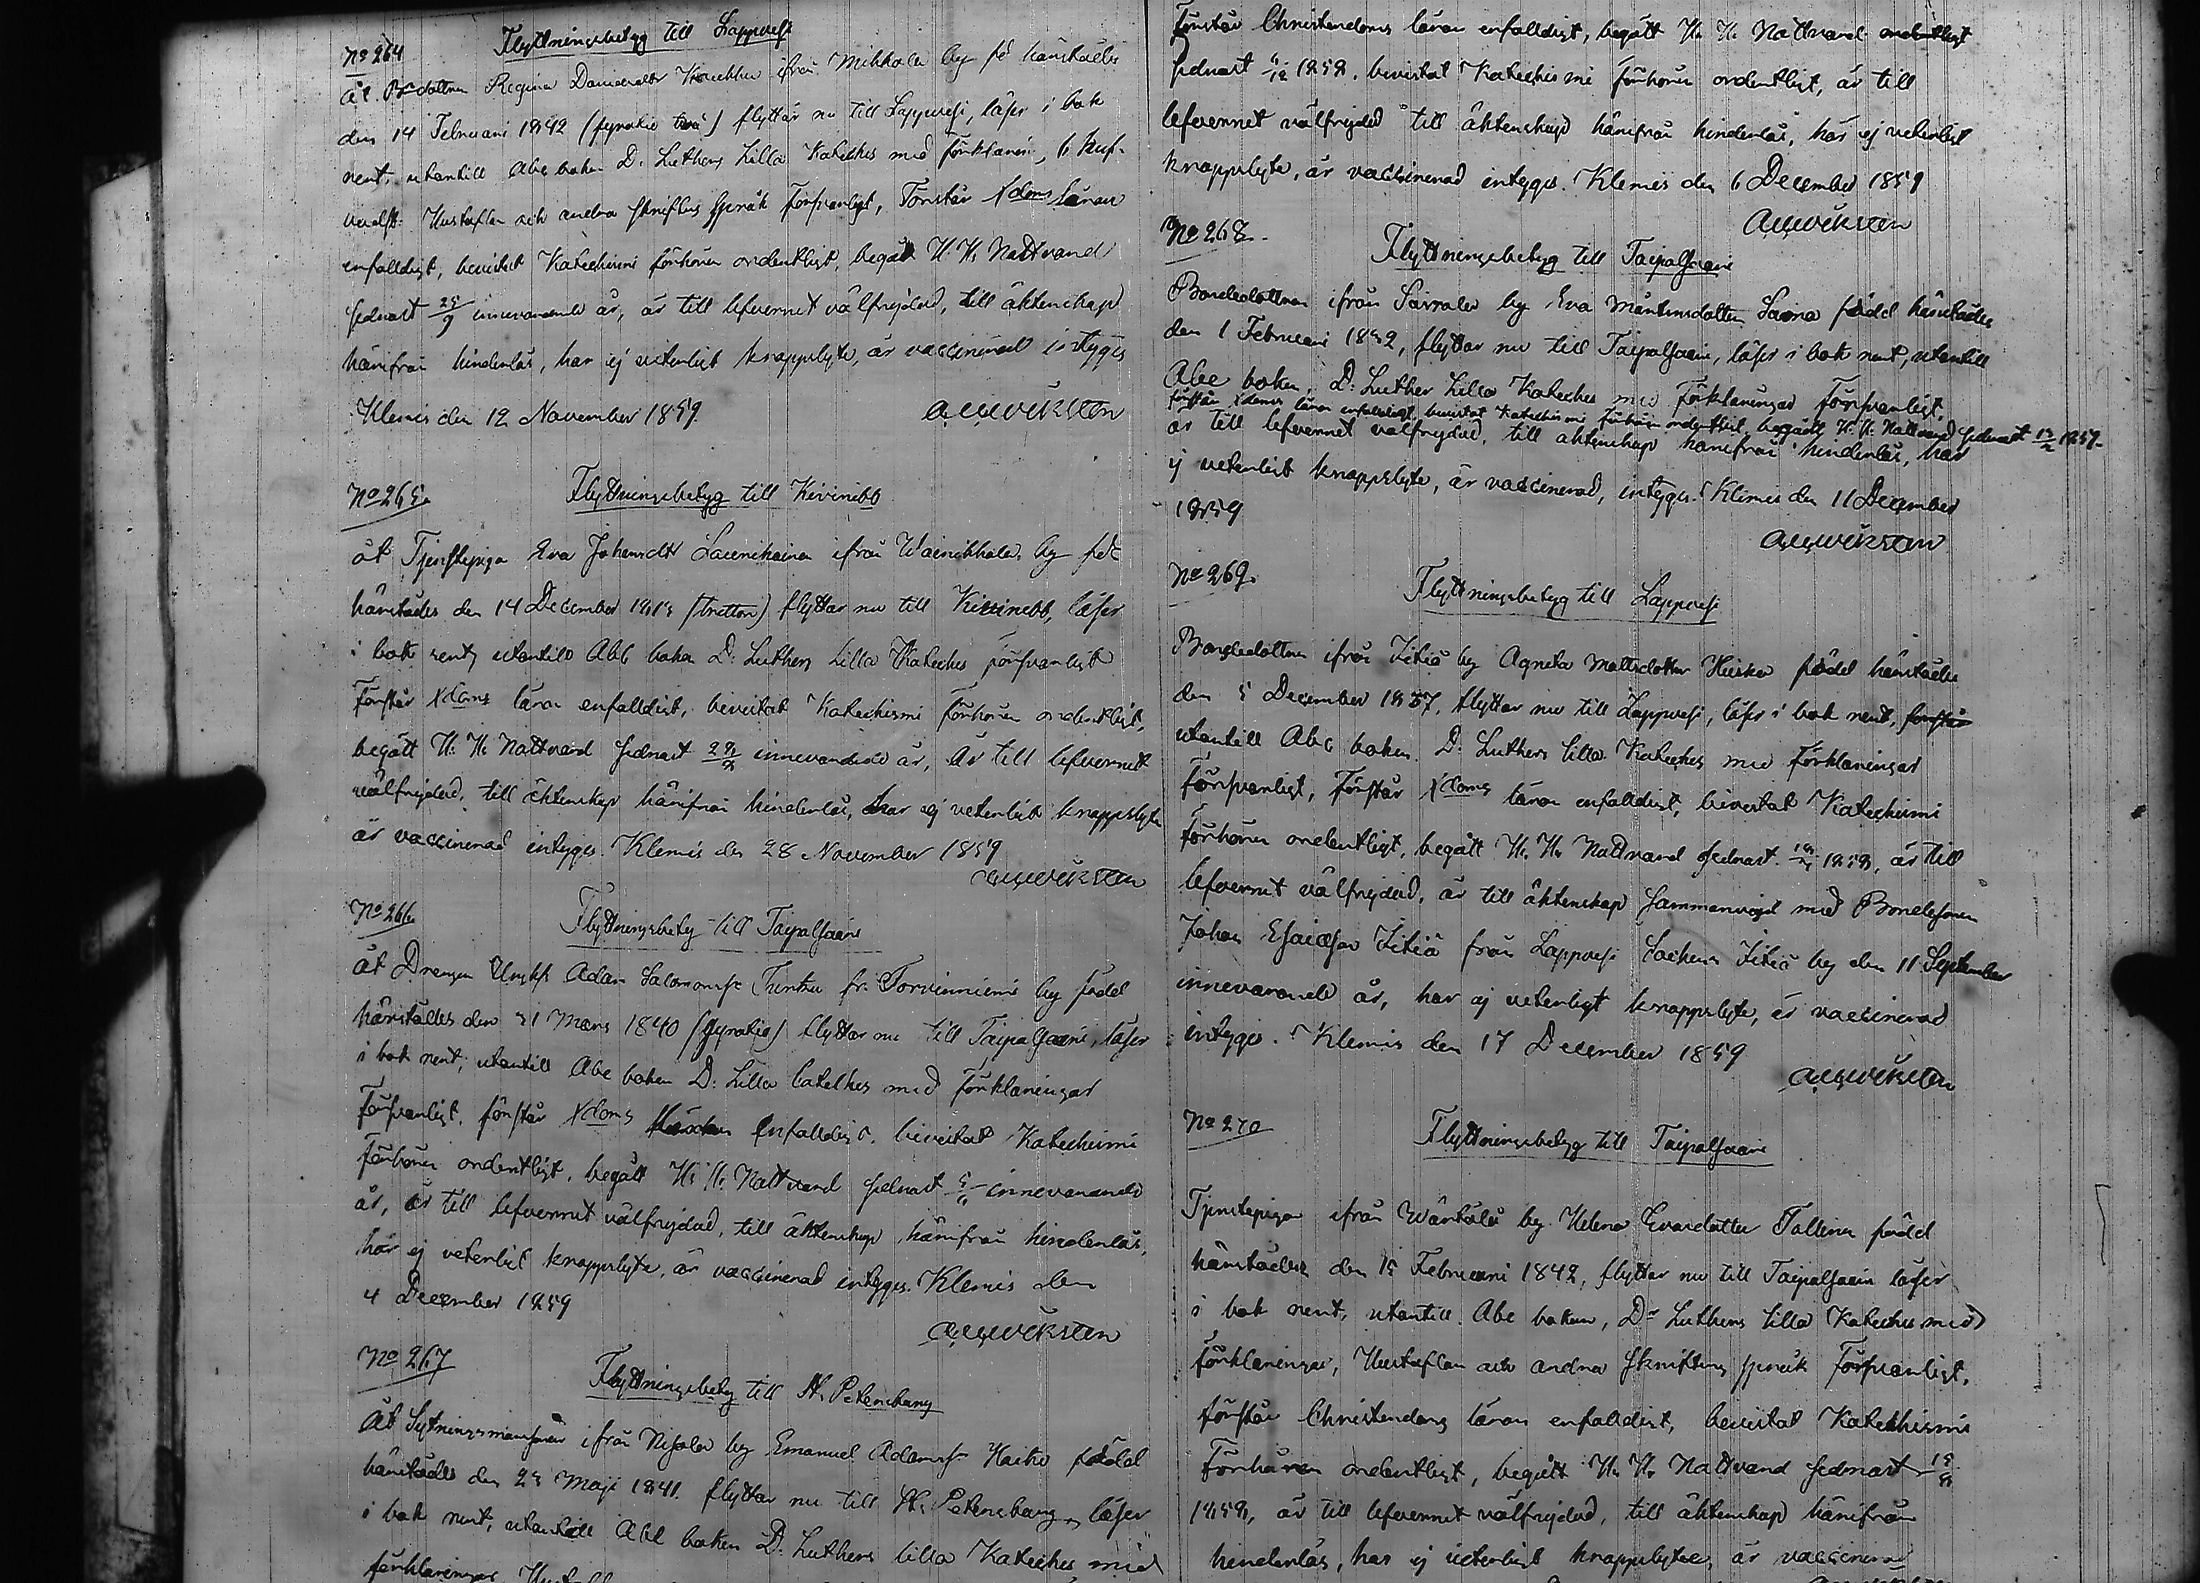 No 264 Flyttningsbetyg till Lappvesi
åt Bdottren Regina Danielsdtr ifrån Mikkola by fd härstädes
den 14 Februari 1842 (fyratio två) flyttar nu till Lappvesi, läser i bok
rent, utantill Abc boken D. Luthers Lilla Kateches med förklarin, 
Hustaflan och andra skriftens språk försvarligt, Förstår Xdoms läran
enfalldigt, bevistat Katechismi förhören ordentligt, begått H. H. Nattvard
sednast 25/9 innevarande år, är till lefvernet välfrejdad, till äktenskap
härifrån hinderlös, har ej veterligt knappslyte, är vaccinerad intygas
Klemis den 12 November 1859.
No 265. Flyttningsbetyg till Kivinebb
åt Tjenstepiga Eva Johansdtr Laurikainen ifrån Wainikkala by fdd
härstädes den 14 December 1813 (tretton) flyttar nu till Kivinebb, läser
i bok rent, utantill Abc boken D. Luthers Lilla Kateches försvarligt
Förstår Xdoms läran enfalldigt, bevistat Katechismi förhören ordentligt,
begått H. H. Nattvard sednast innevarande år, är till lefvernet
välfrejdad, till äktenskap härifrån hinderlös, har ej veterligt knappslyte
är vaccinerad intygas. Klemis den 28 November 1859
No 266. Flyttningsbetyg till Taipalsaari
åt Drengen Adam Salomonss fr. Torvinniemi by född
härstädes den 31 Mars 1840 (fyratio) flyttar nu till Taipalsaari, läser
i bok rent, utantill Abc boken D. Lilla Cateches med förklaringar
försvarligt, förstår Xdoms läran enfalldigt, bevistat Katechismi
förhören ordentligt, begått H. H. Nattvard sednast innevarande
år, är till lefvernet välfrejdad, till äktenskap härifrån hinderlös,
har ej veterligt knappslyte, är vaccinerad intygas. Klemis den
4 December 1859
No 267 Flyttningsbetyg till St. Petersburg
åt Sytningsmansonen ifrån by Emanuel Adamss född
härstädes den 23 Maji 1841. flyttar nu till St. Petersburg, läser
i bok rent, utantill Abc boken D. Luthers lilla Kateches med
förklaringar,
Förstår Christendoms läran enfalldigt, begått H. H. Nattvard ordentligt
sednast 1858. bevistat Katechismi förhören ordentligt, är till
lefvernet välfrejdad till äktenskap härifrån hinderlös, har ej veterligt
knappslyte, är vaccinerad intygas. Klemis den 6 December 1859
No 268. Flyttningsbetyg till Taipalsaari
Bondedottren ifrån Sarrala by Eva Mårtensdotter född härstädes
den 1 Februari 1832, flyttar nu till Taipalsaari, läser i bok rent, utantill
Abc boken, D. Luther Lilla Kateches med Förklaringar Försvarligt,
förstår Xdoms läran enfalldigt, bevistat Katechismi förhören ordentligt, begått H. H. Nattvard sednast 1859.
är till lefvernet välfrejdad, till äktenskap härifrån hinderlös, har
ej veterligt knappslyte, är vaccinerad, intygas. Klemis den 11 December
1859
No 269. Flyttningsbetyg till Lappvesi
Bondedottren ifrån Jitiä by Agneta Mattsdotter född härstädes
den 5 December 1837, flyttar nu till Lappvesi, läser i bok rent, förstår
utantill Abc boken. D. Luthers lilla Kateches med Förklaringar
Försvarligt, Förstår Xdoms läran enfalldigt, bevistat Katechismi
Förhören ordentligt, begått H. H. Nattvard sednast 1858, är till
lefvernet välfrejdad, är till äktenskap sammanvigd med Bondesonen
Johan Esaiasson Jitiä från Lappvesi Sochen Jitiä by den 11 September
innevarande år, har ej veterligt knappslyte, är vaccinerad
intygas. Klemis den 17 December 1859
No 270 Flyttningsbetyg till Taipalsaari
Tjenstepigan ifrån by Helena Evasdotter född
härstädes den 15 Februari 1842, flyttar nu till Taipalsaari läser
i bok rent, utantill Abc boken, Dr Luthers lilla Kateches med
förklaringar, Hustaflan och andra Skriftens språk Försvarligt,
förstår Christendoms läran enfalldigt, bevistat Katechismi
Förhören ordentligt, begått H. H. Nattvard sednast
1858, är till lefvernet välfrejdad, till äktenskap härifrån
hinderlös, har ej veterligt knappslyte, är vaccinerad